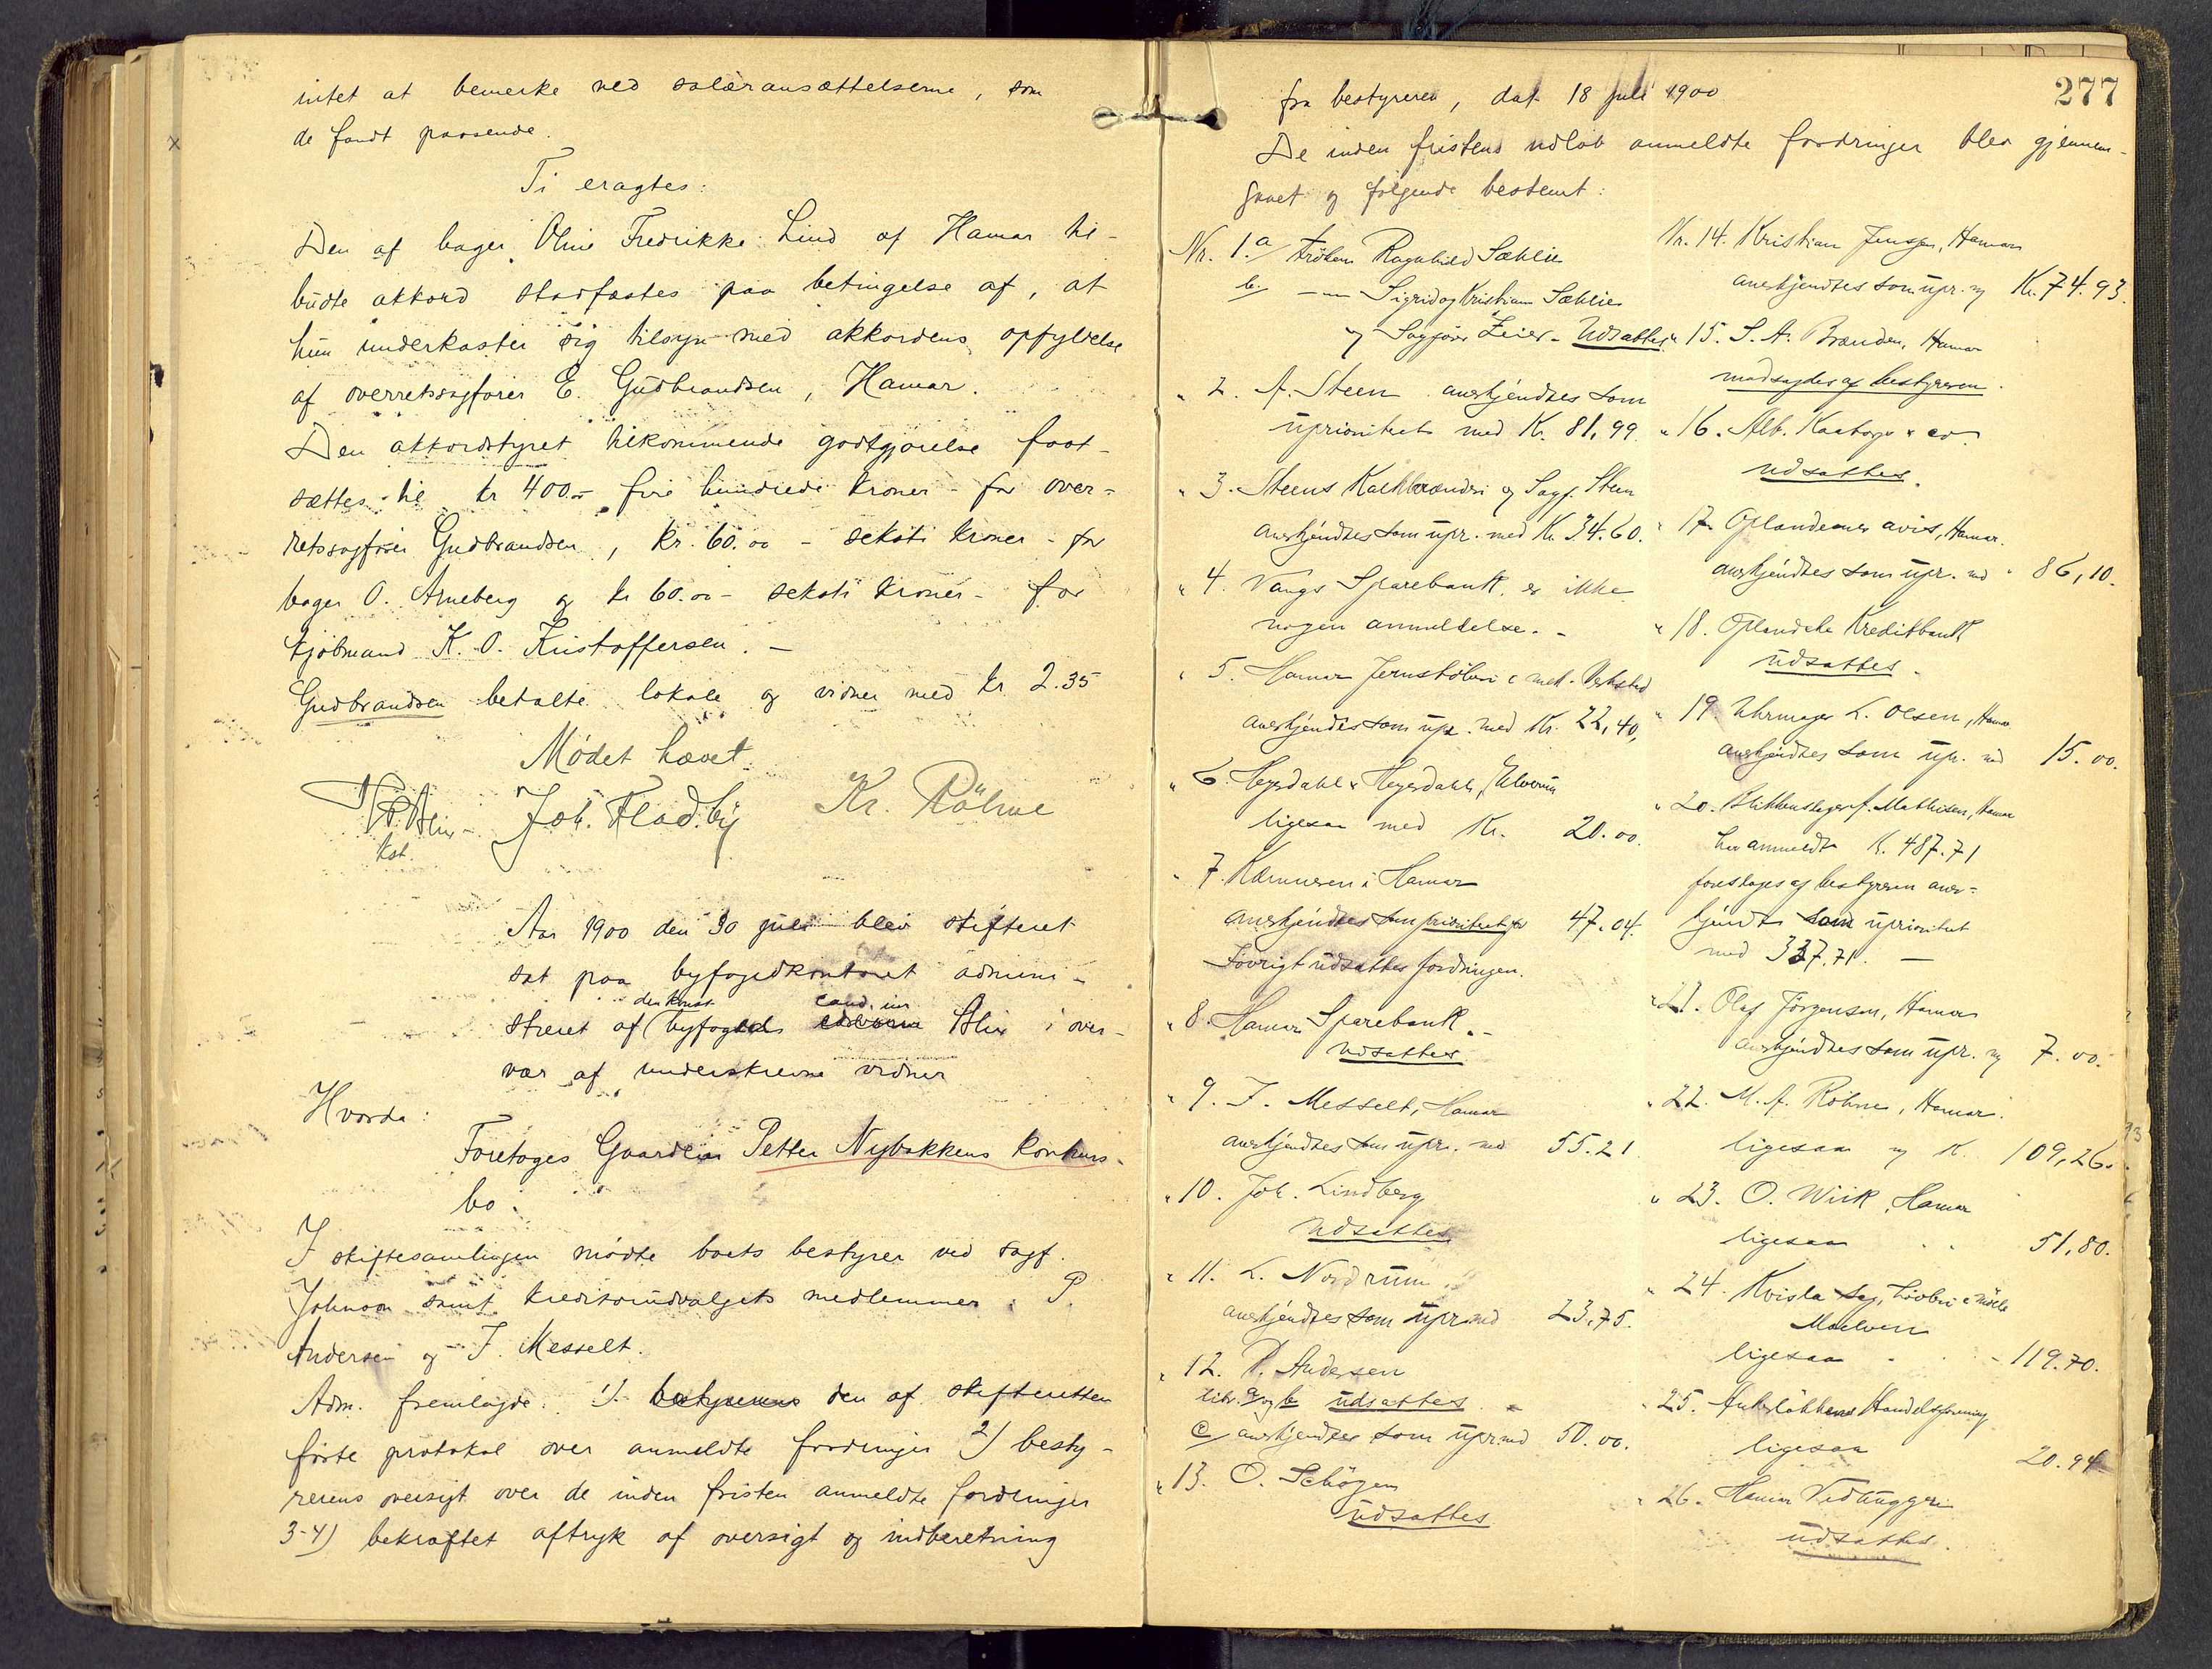 intet at bemerke ved salæransættelserne, som
de fandt passende.
Ti eragtes:
Den af bager Oline Fredrikke Lind af Hamar til-
budte akkord stadfæstes paa betingelse af, at
hun underkaster sig tilsyn med akkordens opfyldelse
af overretssagfører E. Gudbrandsen, Hamar.
Den akkordstyret tilkommende godtgjørelse fast-
sættes til kr 400.- fire hundrede kroner - for over-
retssagfører Gudbrandsen, kr. 60.00 - seksti kroner - for
bager O. Arneberg og kr 60.00 - seksti kroner - for
kjøbmand K. O. Kristoffersen. -
Gudbrandsen betalte lokale og vidner med kr. 2.35
Mødet hævet.
Blix Joh. Fladby Kr. Röhne
kst.
Aar 1900 den 30 juli blev skifteret
sat paa byfogedkontoret admini-
den konst. cand. jur
streret af byfoged Blix i over-
vær af underskrevne vidner
Hvorda:
Foretoges Gaardeier Petter Nybakkens konkurs-
bo:
I skiftesamlingen mødte boets bestyrer ved sagf.
Johnson samt kreditorudvalgets medlemmer: P.
Andersen og J. Messelt.
Adm. fremlagde: 1/. bestyrerens den af skifteretten
førte protokol over anmeldte fordringer 2) besty-
rerens oversigt over de inden fristen anmeldte fordringer
3-4) bekræftet aftryk af oversigt og indberetning
277
fra bestyreren, dat 18 juli 1900
De inden fristens udløb anmeldte fordringer blev gjennem-
gaaet og følgende bestemt:
Nr. 1. a/ Frøken Ragnhild Sæhlie
b. -"- Sigrid og Kristian Sæhlie
og Sagfører Zeier - Udsattes.
" 2. A. Steen anerkjendtes som
uprioritert med Kr. 81,99.
" 3. Steens Kalkbrænderi og Sagf. Steen
anerkjendtes som upr. med Kr. 34.60.
" 4. Vangs Sparebank. er ikke
nogen anmeldelse. -
" 5. Hamar Jernstøberi & mek. Verksted
anerkjendtes som upr. med Kr. 22,40,
" 6. Heyerdahl & Heyerdahl, Elverum
ligesaa med Kr. 20.00.
" 7. Kæmneren i Hamar
anerkjendtes som prioriteret for 47.04.
Iøvrigt udsattes fordringen.
" 8. Hamar Sparebank. -
udsattes
" 9. J. Messelt, Hamar
anerkjendtes som upr. med 55.21
" 10. Joh. Lindberg
udsattes
" 11. L. Nordrum
anerkjendtes som upr med 23,75.
" 12. P. Andersen
litr. a og b udsattes. -
c/ anerkjendtes som upr med 50.00.
" 13. O. Schögen
udsattes
Nr. 14. Kristian Jensen, Hamar
anerkjendtes som upr. m Kr. 74.93.
" 15. S. A. Brænden, Hamar
modsagdes af bestyreren.
" 16. Alb. & co.
udsattes.
" 17. Oplandenes avis, Hamar.
anerkjendtes som upr. med " 86,10.
" 18. Oplandske Kreditbank
udsattes.
" 19. Uhrmager L. Olsen, Hamar
anerkjendtes som upr. med 15.00.
" 20. Blikkenslager J. Mathisen, Hamar
har anmeldt Kr. 487.71
foreslages af bestyreren aner-
kjendt som uprioritert
med 337.71. -
" 21. Olaf Jørgensen, Hamar
anerkjendtes som upr. m 7.00.
" 22. M. A. Röhne, Hamar.
ligesaa m K. 109,26.
" 23. O. Wiik, Hamar
ligesaa " " 51,80.
" 24. Kvisla Sag, Høvleri & Mølle
Moelven
ligesaa " " 119.70.
" 25. Ankerløkkens Handelsforening
ligesaa 20.94
" 26. Hamar Vedhuggeri
udsattes.